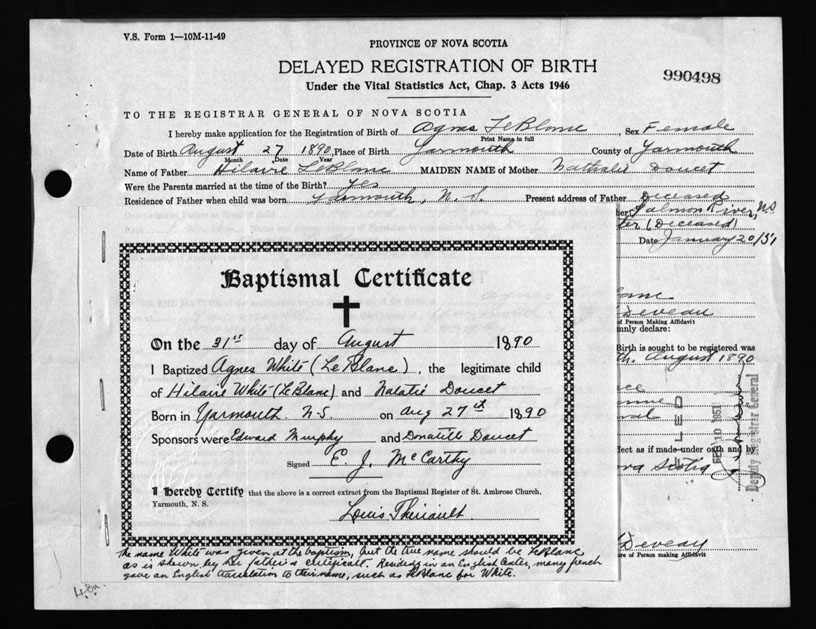 V.S. Form 1—10M-11-49
PROVINCE OF NOVA SCOTIA
DELAYED REGISTRATION OF BIRTH
990498
Under the Vital Statistics Act, Chap. 3 Acts 1946
TO THE REGISTRAR GENERAL OF NOVA SCOTIA
I hereby make application for the Registration of Birth of Agnes LeBlanc, Sex Female
Print Name in full
Date of Birth August 27 1890, Place of Birth Yarmouth County of Yarmouth
Month Date Year
Name of Father Hilaire LeBlanc MAIDEN NAME of Mother Nathalie Doucet
Were the Parents married at the time of the Birth? Yes
Residence of Father when child was born Yarmouth, N.S. Present address of Father Deceased
her Salmon River, N.S
(Deceased)
Date January 20/51
Baptismal Certificate
On the 31st day of August 1890
I Baptized Agnes White (LeBlanc), the legitimate child
of Hilaire White (LeBlanc) and Natalie Doucet
Born in Yarmouth N.S on Aug 27th 1890
Sponsors were Edward Murphy and Donatille Doucet
Signed E. J. McCarthy
I Hereby Certify that the above is a correct extract from the Baptismal Register of St. Ambrose Church,
Yarmouth, N. S.
Louis Theriault
The name White was given at the baptism, but the true name should be LeBlanc
as is shown by her father's certificate. Residing in an English center, many french
gave an English translation to their name, such as LeBlanc for White.
Deveau
of Person Making Affidavit
mnly declare:
Birth is sought to be registered was
th. August 1890
FILED
FEB 10 1951
Deputy Registrar General
fect as if made under oath and by
ova Scotia
Deveau
ure of Person making Affidavit